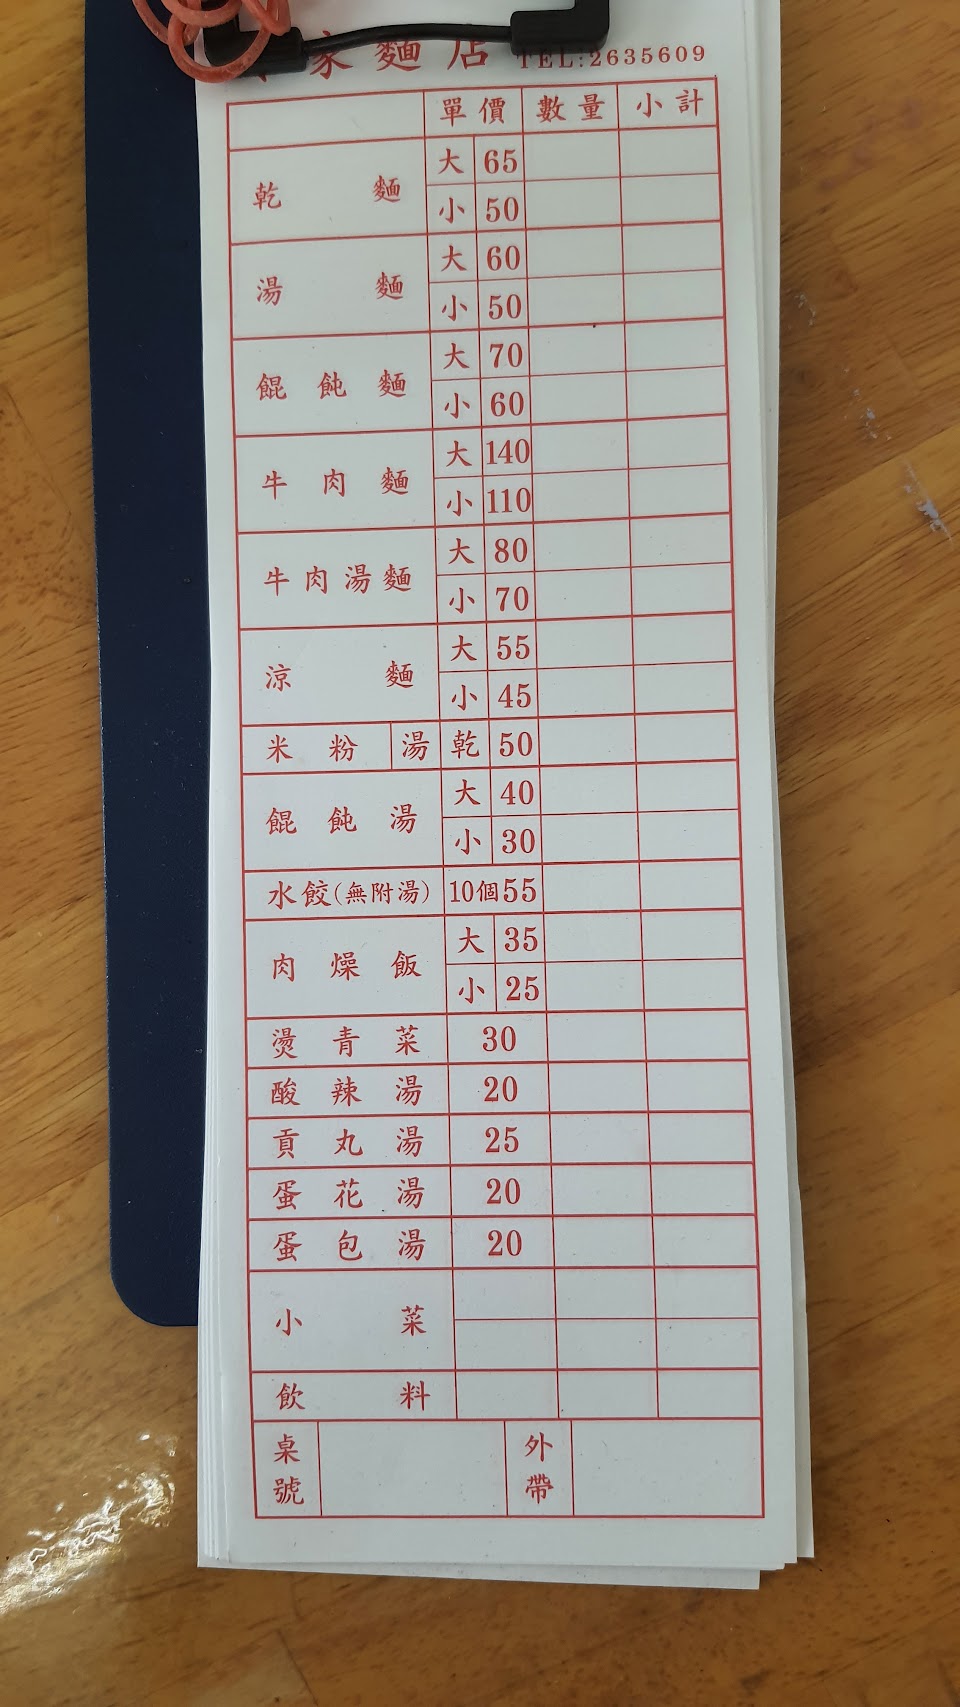 家麵店 TEL:2635609
單價 數量 小計
乾麵 大 65
小 50
湯麵 大 60
小 50
餛飩麵 大 70
小 60
牛肉麵 大 140
小 110
牛肉湯麵 大 80
小 70
涼麵 大 55
小 45
米粉 湯 乾 50
餛飩湯 大 40
小 30
水餃(無附湯) 10個55
肉燥飯 大 35
小 25
燙青菜 30
酸辣湯 20
貢丸湯 25
蛋花湯 20
蛋包湯 20
小菜
飲料
桌號 外帶